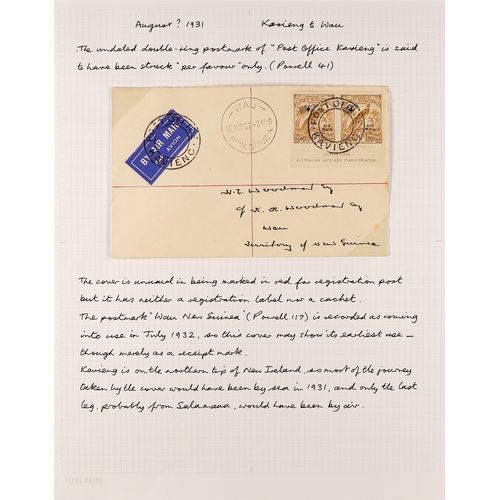 August ? 1931 Kavieng to Wau
The undated double-ring postmark of "Post Office Kavieng" is said
to have been struck "per favour" only. (Powell 41)
BY AIR MAIL
PAR AVION
KAVIENG
WAU
NEW GUINEA
POST OFFICE
KAVIENG
AIR MAIL
AIR MAIL
AUSTRALIAN NOTE AND STAMP PRINTER
W. E. Woodman Esq
Woodman Esq
Wau
Territory of New Guinea
The cover is unusual in being marked in red for registration post
but it has neither a registration label nor a cachet.
The postmark "Wau New Guinea" (Powell 117) is recorded as coming
into use in July 1932, so this cover may show its earliest use –
though merely as a receipt mark.
Kavieng is on the northern tip of New Ireland, so most of the journey
taken by the cover would have been by sea in 1931, and only the last
leg, probably from Salamaua, would have been by air.